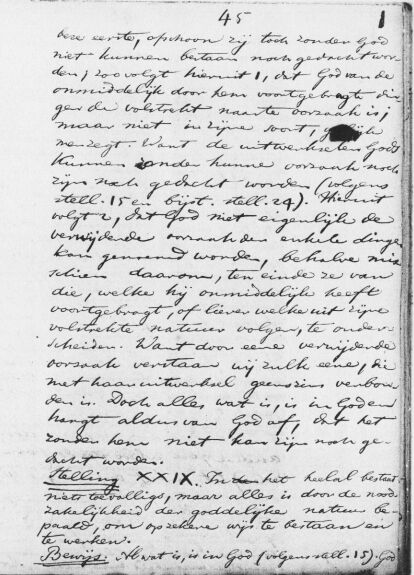 45
1
deze eerste, ofschoon zij toch zonder God
niet kunnen bestaan noch gedacht wor-
den; zoo volgt hieruit 1, dat God van de
onmiddelijk door hem voortgebragte din-
gen de volstrekt naaste oorzaak is;
maar niet in zijne soort, gelijk
men zegt. Want de uitwerkselen Gods
kunnen zonder hunne oorzaak noch
zijn noch gedacht worden (volgens
stell. 15 en bijst. stell. 24). Hieruit
volgt 2, dat God niet eigenlijk de
verwijderde oorzaak der enkele dingen
kan genoemd worden, behalve mis
schien daarom, ten einde ze van
die, welke hij onmiddelijk heeft
voortgebragt, of liever welke uit zijne
volstrekte natuur volgen, te onder-
scheiden. Want door eene verwijderde
oorzaak verstaan wij zulk eene, die
met haar uitwerksel geenszins verbon-
den is. Doch alles wat is, is in God en
hangt aldus van God af, dat het
zonder hem niet kan zijn noch ge-
dacht worden.
Stelling XXIX. In het heelal bestaat
niets toevalligs, maar alles is door de nood-
zakelijkheid der goddelijke natuur be-
paald, om op zekere wijs te bestaan en
te werken.
Bewijs. Al wat is, is in God (volgens stell. 15). God